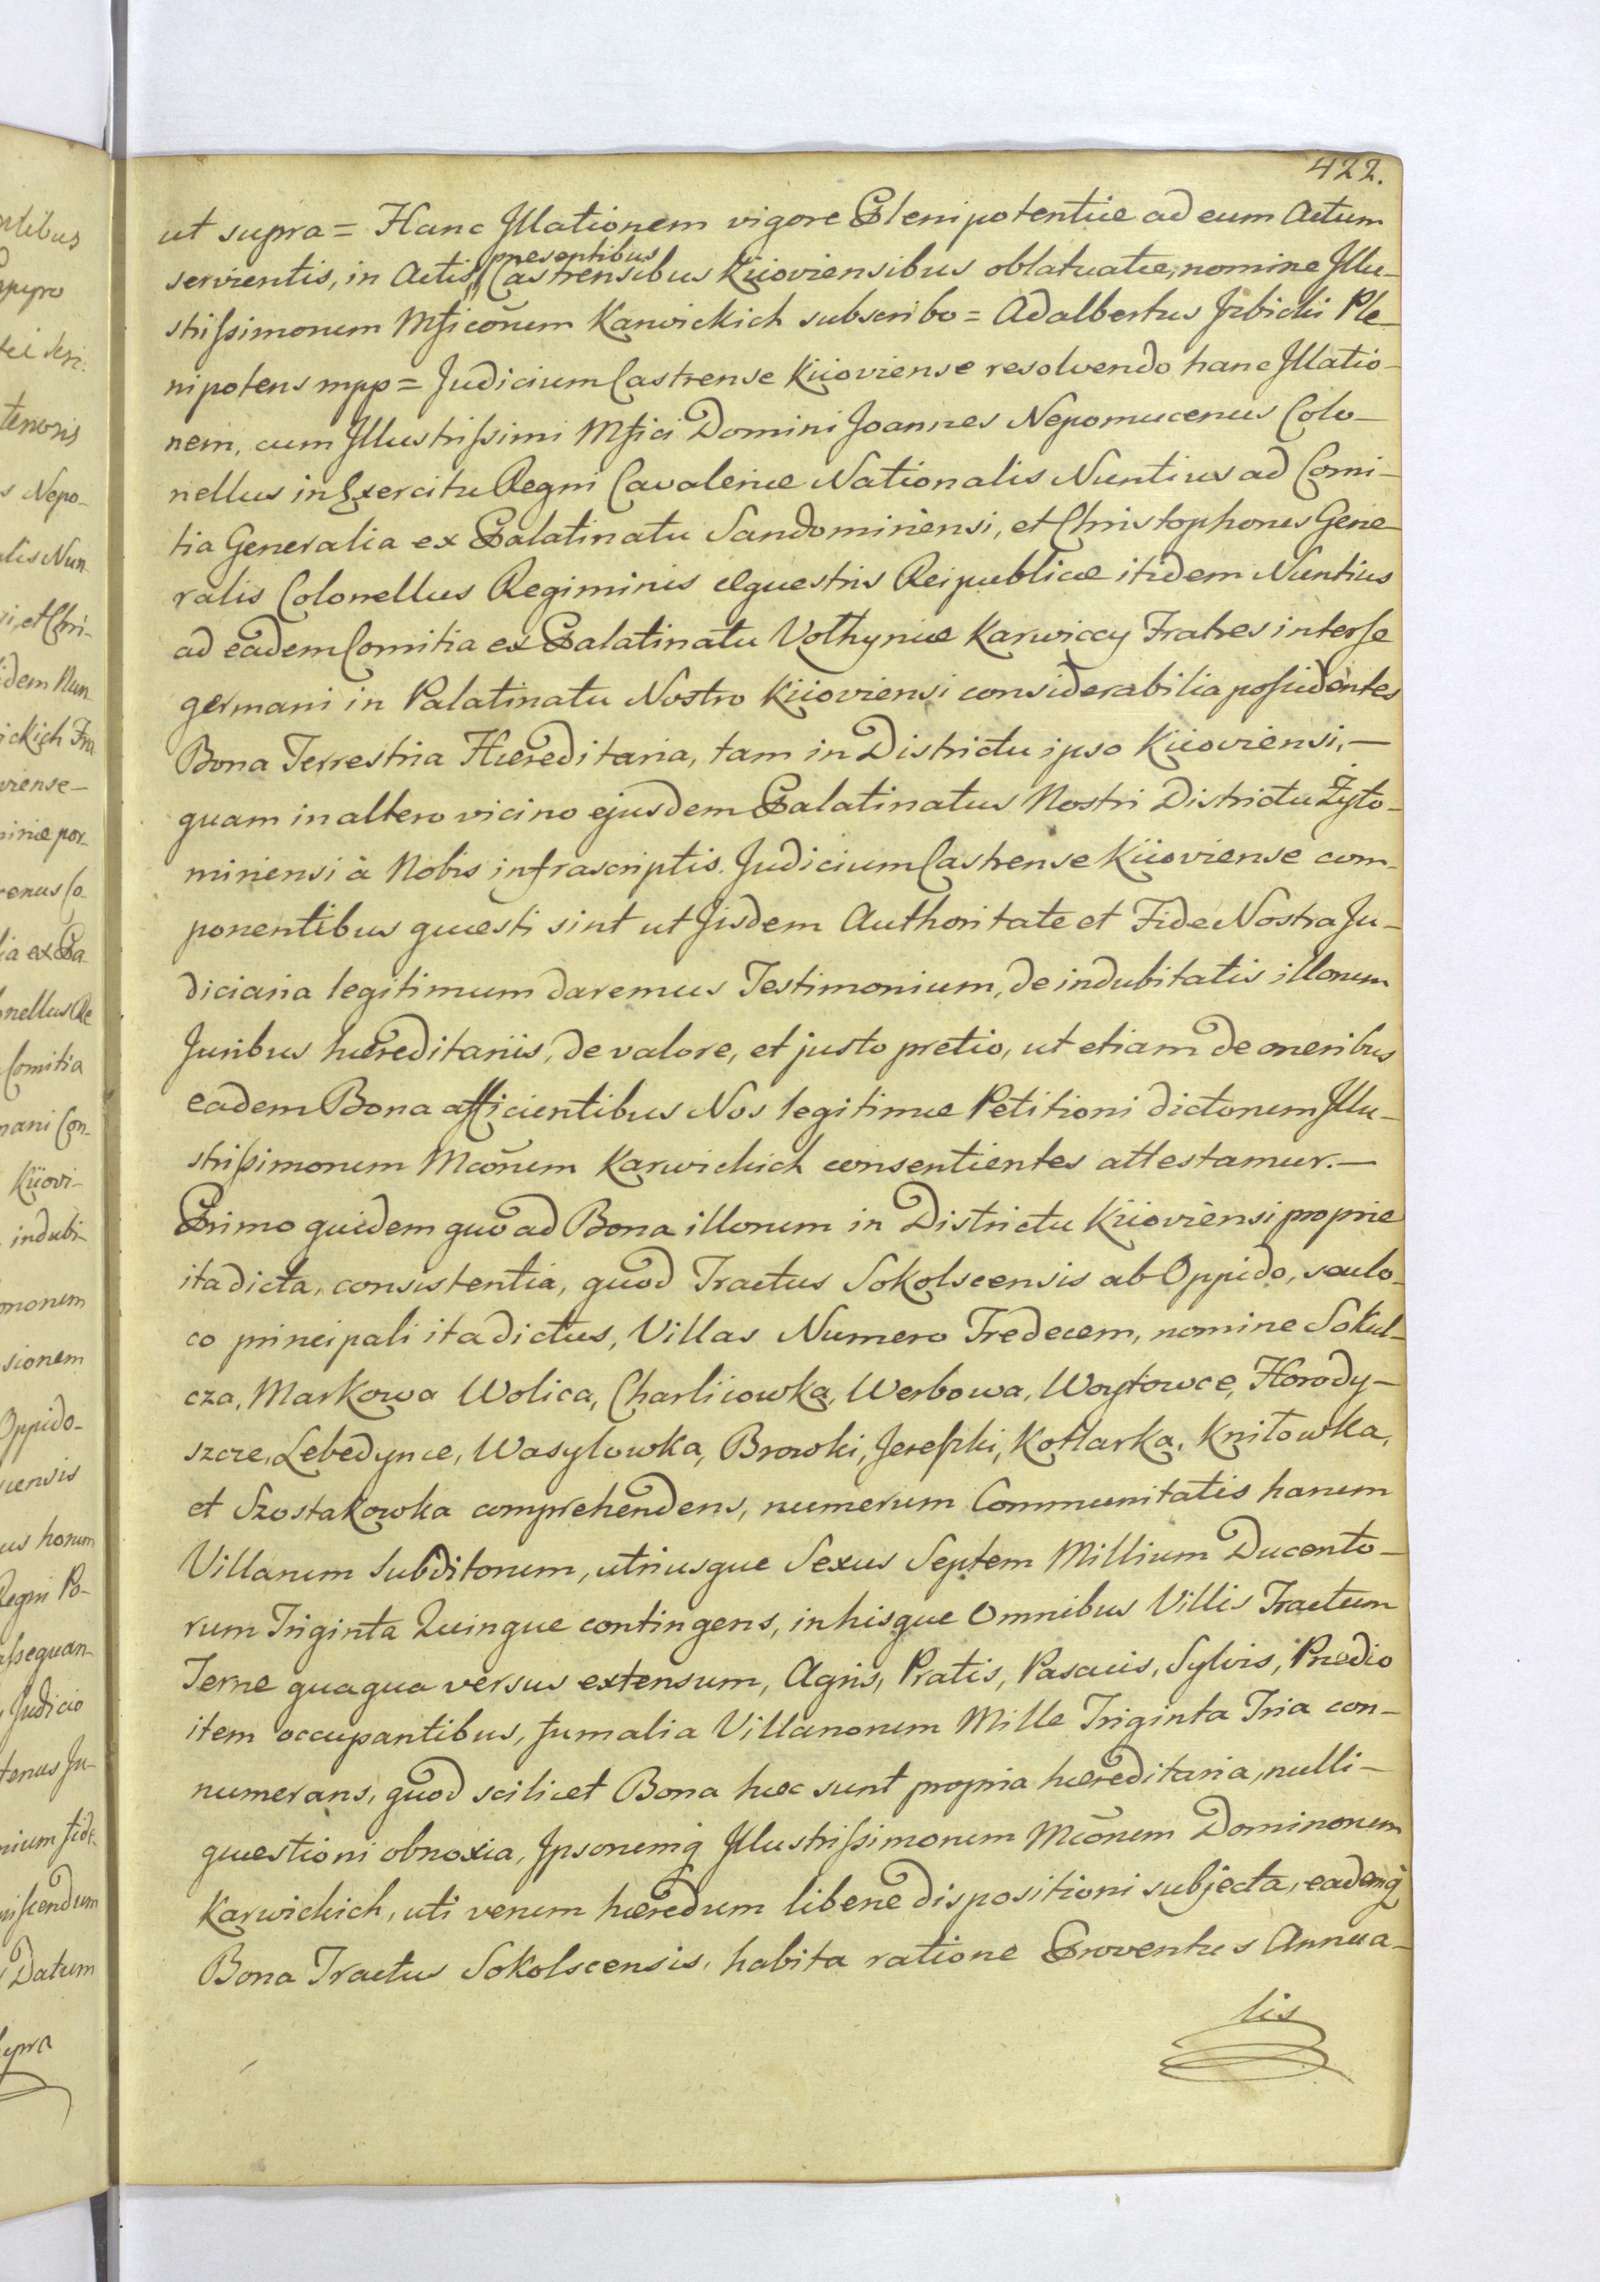 422.
ut supra = Hanc Illationem vigore Plenipotentiæ ad eum Actum
præsentibus
servientis, in Actis Castrensibus Kiioviensibus oblatuatæ, nomine Illu-
strissimorum Mficorum Karwickich subscribo = Adalbertus Izbicki Ple-
nipotens mpp = Judicium Castrense Kiioviense resolvendo hanc Illatio-
nem, cum Illustrissimi Mfici Domini Joannes Nepomucenus Colo-
nellus in Exercitu Regni Cavaleriæ Nationalis Nuntius ad Comi-
tia Generalia ex Palatinatu Sandomiriensi, et Christophorus Gene-
ralis Colonellus Regiminis Equestris Reipublicæ itidem Nuntius
ad eadem Comitia ex Palatinatu Volhyniæ Karwiccy Fratres inter se
germani in Palatinatu Nostro Kiioviensi considerabilia possidentes
Bona Terrestria Hæreditaria, tam in Districtu ipso Kiioviensi, —
quam in altero vicino ejusdem Palatinatus Nostri Districtu Żyto-
miriensi à Nobis infrascriptis Judicium Castrense Kiioviense com-
ponentibus quæsti sint ut Iisdem Authoritate et Fide Nostra Ju-
diciaria legitimum daremus Testimonium, de indubitatis illorum
Juribus hæreditariis, de valore, et justo pretio, ut etiam de oneribus
eadem Bona afficientibus Nos legitimæ Petitioni dictorum Illu-
strissimorum Mcorum Karwickich consentientes attestamur. —
Primo quidem quo ad Bona illorum in Districtu Kiioviensi proprie
ita dicta, consistentia, quod Tractus Sokolscensis ab Oppido, seu lo-
co principali ita dictus, Villas Numero Tredecem, nomine Sokul-
cza, Markowa Wolica, Charliiowka, Werbowa, Woytowce, Horody-
szcze, Lebedynce, Wasylowka, Browki, Jereszki, Kotlarka, Kryłowka,
et Szostakowka comprehendens, numerum Communitatis harum
Villarum Subditorum, utriusque Sexus Septem Millium Ducento-
rum Triginta Quinque contingens, in hisque Omnibus Villis Tractum
Terræ quaqua versus extensum, Agris, Pratis, Pascuis, Sylvis, Prædio
item occupantibus, fumalia Villanorum Mille Triginta Tria con-
numerans, quod scilicet Bona hæc sunt propria hæreditaria, nulli-
quæstioni obnoxia, Ipsorumq Illustrissimorum Mcorum Dominorum
Karwickich, uti verum hæredum liberæ dispositioni subjecta, eademq
Bona Tractus Sokolscensis, habita ratione Proventus Annua-
lis